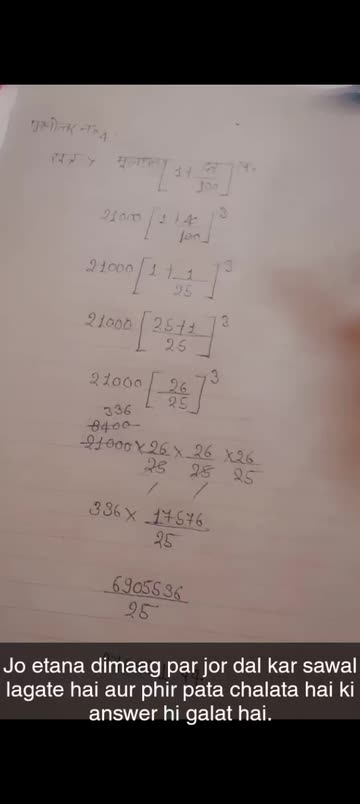 प्रश्नोत्तर नं०4
मूलधन [1 + दर/100]
21000 [1 + 4/100]³
21000 [1 + 1/25]³
21000 [25+1/25]³
21000 [26/25]³
336
8400
21000 × 26/25 × 26/25 × 26/25
336 × 17576/25
6905536/25
Jo etana dimaag par jor dal kar sawal
lagate hai aur phir pata chalata hai ki
answer hi galat hai.